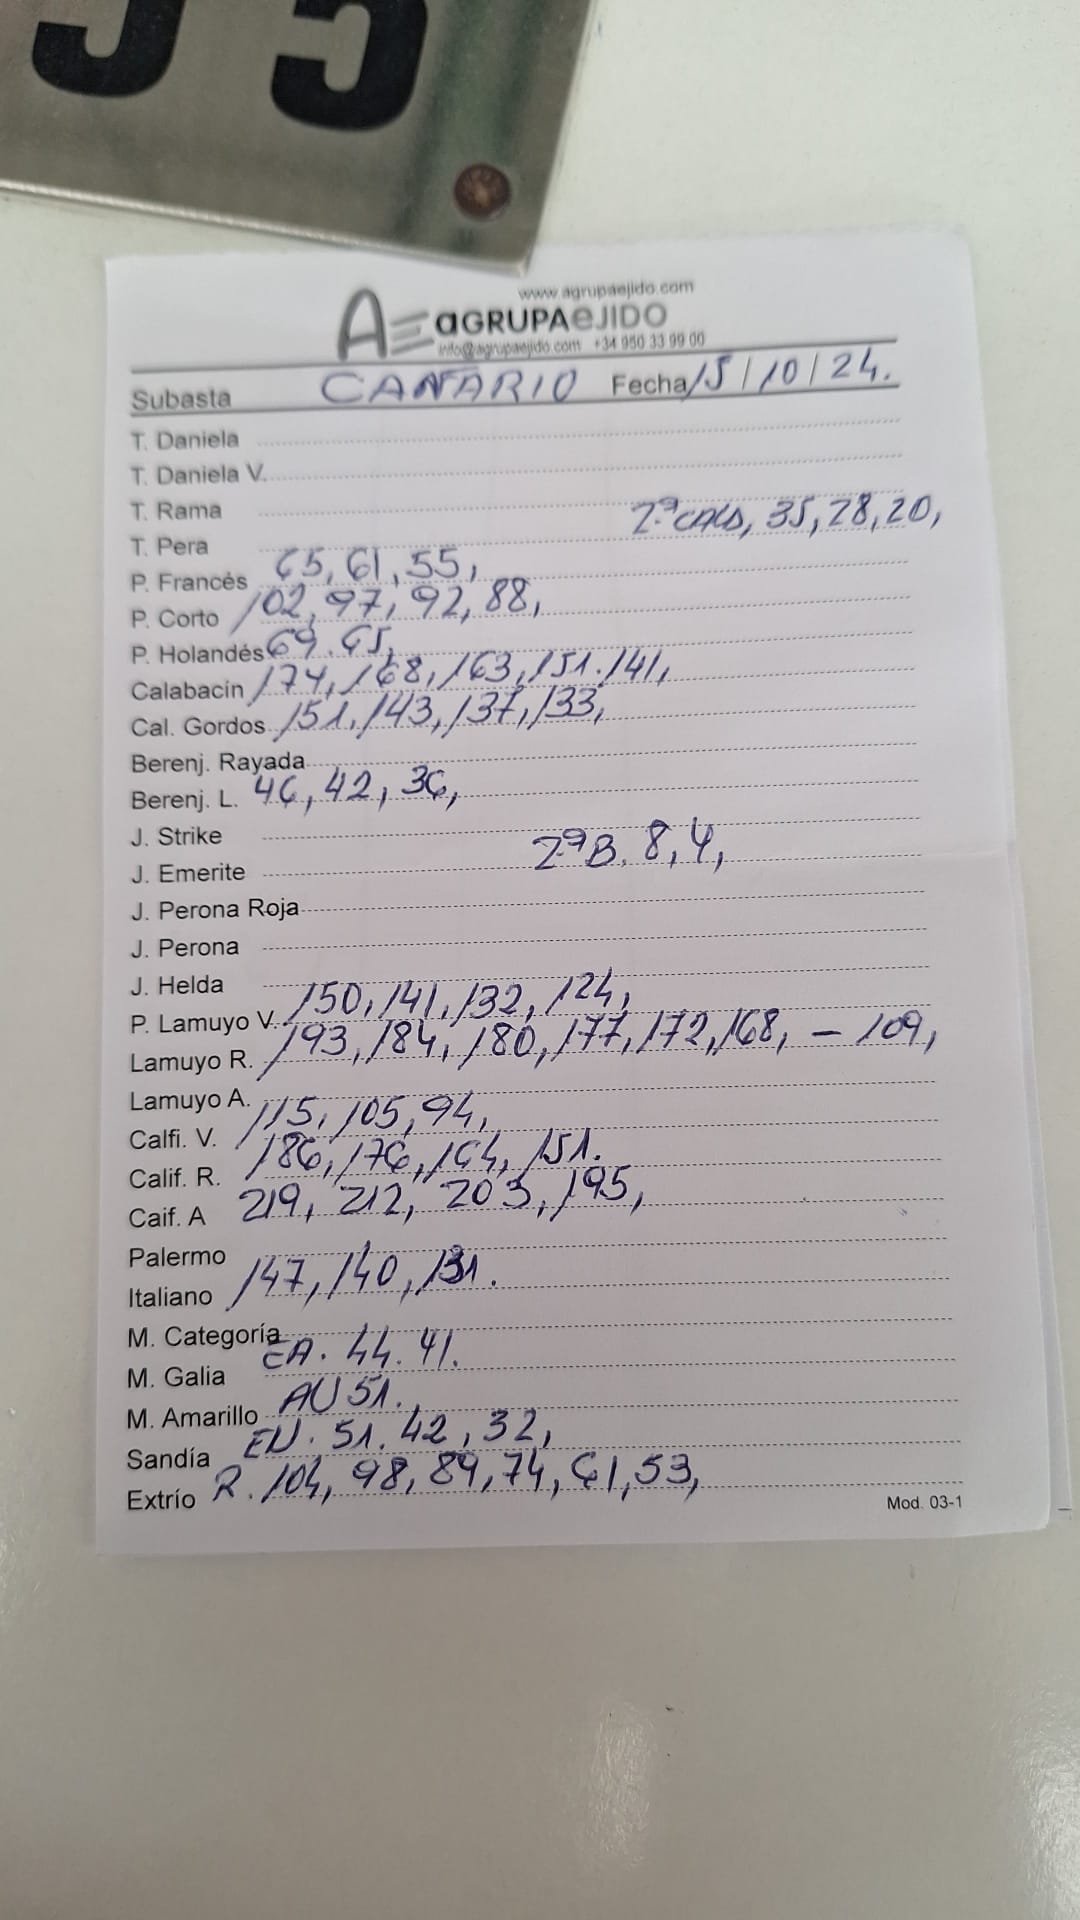 35
www.agrupaejido.com
AE aGRUPAeJIDO
info@agrupaejido.com +34 950 33 99 00
Subasta CANARIO Fecha 15/10/24.
T. Daniela
T. Daniela V.
T. Rama 2.ª CALD, 35, 28, 20,
T. Pera
P. Francés 65, 61, 55,
P. Corto 102, 97, 92, 88,
P. Holandés 69. 65,
Calabacín 174, 168, 163, 151. 141,
Cal. Gordos 151. 143, 137, 133,
Berenj. Rayada
Berenj. L. 46, 42, 36,
J. Strike
J. Emerite 2ª B. 8, 4,
J. Perona Roja
J. Perona
J. Helda
P. Lamuyo V. 150, 141, 132, 124,
Lamuyo R. 193, 184, 180, 177, 172, 168, - 109,
Lamuyo A.
Calfi. V. 115, 105, 94,
Calif. R. 186, 176, 164, 151.
Caif. A 219, 212, 203, 195,
Palermo
Italiano 147, 140, 131.
M. Categoría
M. Galia CA. 44. 41.
M. Amarillo AU 51.
Sandía EN. 51. 42, 32,
Extrío R. 104, 98, 89, 74, 61, 53,
Mod. 03-1